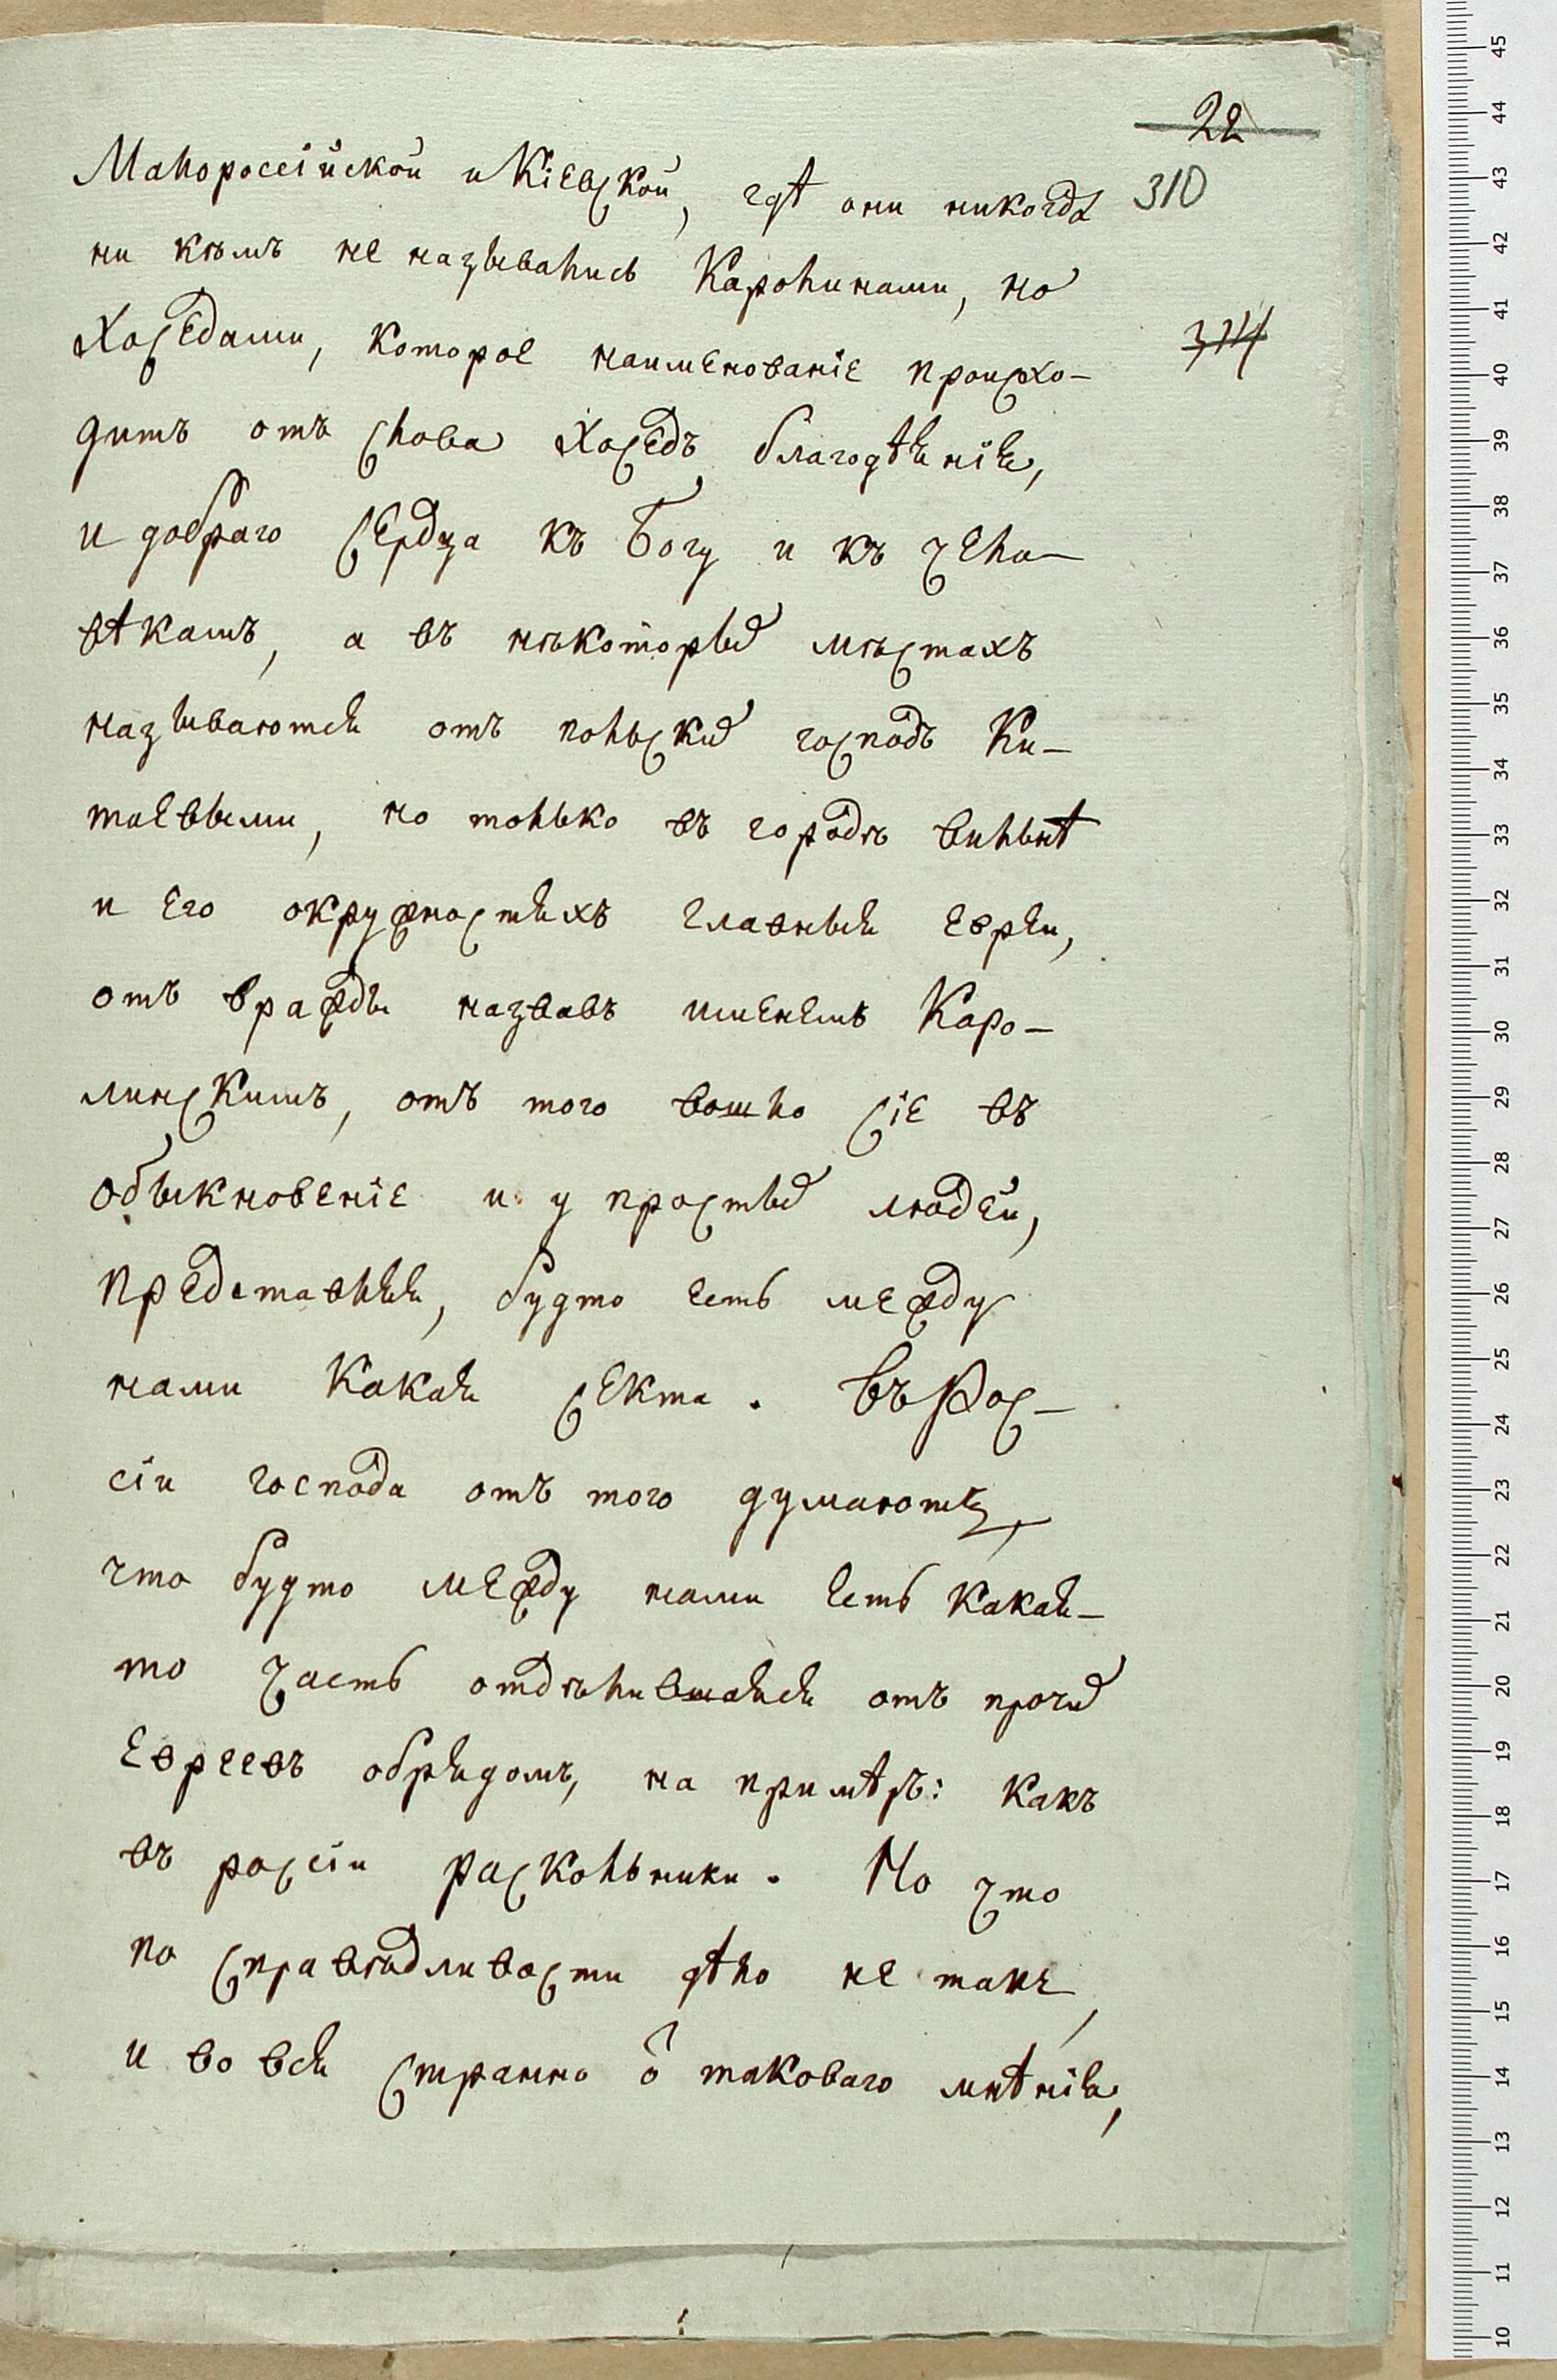 22
Малороссійской и Кіевской, гдѣ они никогда
310
ни кѣмъ не назывались Каролинами, но
Хоседами, которое наименованіе происхо-
314
дитъ отъ слова Хоседъ благодѣянія,
и добраго сердца къ Богу и къ чело-
вѣкамъ, а въ нѣкоторых мѣстахъ
называются отъ польских господъ Ки-
таевыми, но только въ городѣ Вильнѣ
и его окружностяхъ главныя евреи,
отъ вражды назвавъ именемъ Каро-
линскимъ, отъ того вошло сіе въ
обыкновеніе и у простых людей,
представляя, будто есть между
нами какая секта. Въ Рос-
сіи господа отъ того думаютъ,
что будто между нами есть какая-
то часть отдѣлившаяся отъ прочих
Евреевъ обрядомъ, на примѣръ: какъ
въ россіи раскольники. Но что
по справедливости дѣло не такъ,
и во вся странно о таковаго мнѣнія,